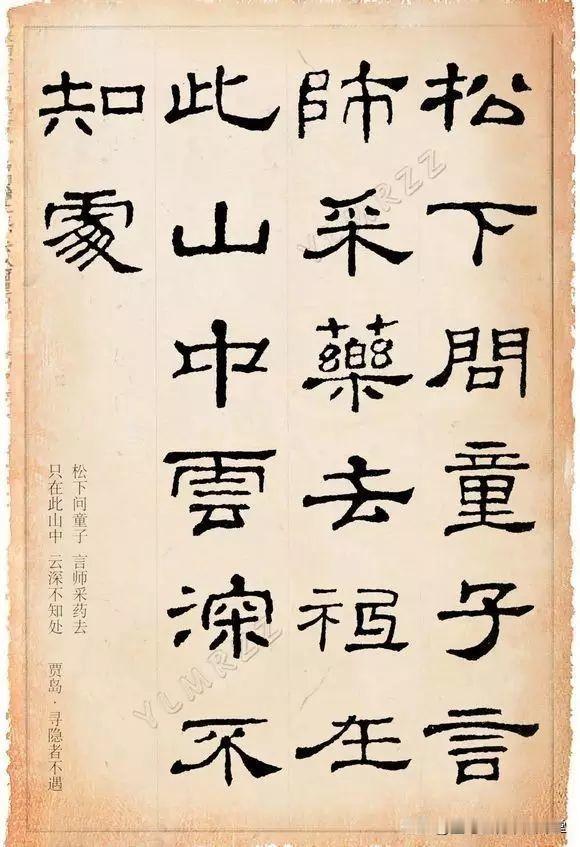 松下問童子言
師采藥去祇在
此山中雲深不
知處
松下问童子 言师采药去
只在此山中 云深不知处 贾岛·寻隐者不遇
YLMRZZ
YLMRZZ